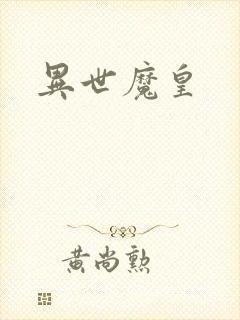 異世魔皇
黄尚勲